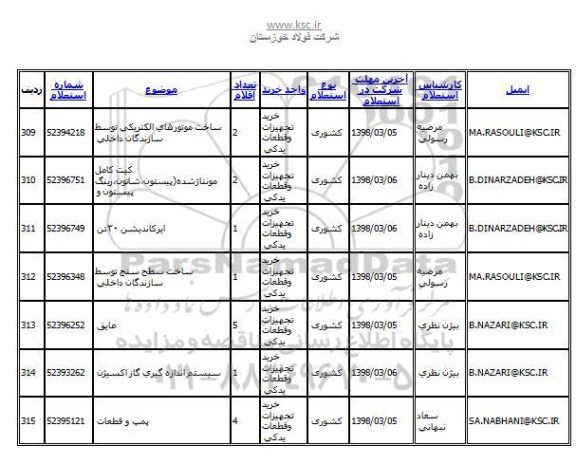 www.ksc.ir
شرکت فولاد خوزستان
ردیف شماره استعلام موضوع تعداد اقلام واحد خرید نوع استعلام آخرین مهلت شرکت در استعلام کارشناس استعلام ایمیل
309 52394218 ساخت موتورهاي الکتريکي توسط سازندگان داخلي 2 خريد تجهيزات وقطعات يدکي کشوری 1398/03/05 مرضيه رسولي MA.RASOULI@KSC.IR
310 52396751 کيت کامل مونتاژشده(پيستون،شاتون،رينگ پيستون و 2 خريد تجهيزات وقطعات يدکي کشوری 1398/03/06 بهمن دينار زاده B.DINARZADEH@KSC.IR
311 52396749 ايرکانديشن ۳۰تن 1 خريد تجهيزات وقطعات يدکي کشوری 1398/03/06 بهمن دينار زاده B.DINARZADEH@KSC.IR
312 52396348 ساخت سطح سنج توسط سازندگان داخلي 1 خريد تجهيزات وقطعات يدکي کشوری 1398/03/05 مرضيه رسولي MA.RASOULI@KSC.IR
313 52396252 عايق 5 خريد تجهيزات وقطعات يدکي کشوری 1398/03/05 بيژن نظري B.NAZARI@KSC.IR
314 52393262 سيستم اندازه گيري گاز اکسيژن 1 خريد تجهيزات وقطعات يدکي کشوری 1398/03/06 بيژن نظري B.NAZARI@KSC.IR
315 52395121 پمپ و قطعات 4 خريد تجهيزات وقطعات يدکي کشوری 1398/03/05 سعاد نبهاني SA.NABHANI@KSC.IR
ParsNamadData
پایگاه اطلاع رسانی مناقصه و مزایده